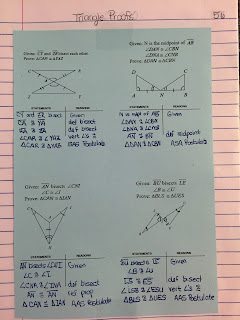 Triangle Proofs
5b
Given: CY and ZR bisect each other.
Prove: ΔCAR ≅ ΔYAZ
STATEMENTS REASONS
CY and ZR bisect Given
CA ≅ YA def bisect
RA ≅ ZA def bisect
∠CAR ≅ ∠YAZ vert ∠s ≅
ΔCAR ≅ ΔYAZ SAS Postulate
Given: N is the midpoint of AB
∠DAN ≅ ∠CBN
∠DNA ≅ ∠CNB
Prove: ΔDAN ≅ ΔCBN
D C
A N B
STATEMENTS REASONS
N is mdpt of AB Given
∠DAN ≅ ∠CBN
∠DNA ≅ ∠CNB
AN ≅ BN def midpoint
ΔDAN ≅ ΔCBN ASA Postulate
Given: AN bisects ∠CNI
∠C ≅ ∠I
Prove: ΔCAN ≅ ΔIAN
STATEMENTS REASONS
AN bisects ∠CNI Given
∠C ≅ ∠I
∠CNA ≅ ∠INA def bisect
AN ≅ AN ref prop
ΔCAN ≅ ΔIAN AAS Postulate
Given: BU bisects LE
∠B ≅ ∠U
Prove: ΔBLS ≅ ΔUES
STATEMENTS REASONS
BU bisects LE Given
∠B ≅ ∠U
LS ≅ ES def bisect
∠LSB ≅ ∠ESU vert ∠s ≅
ΔBLS ≅ ΔUES AAS Postulate